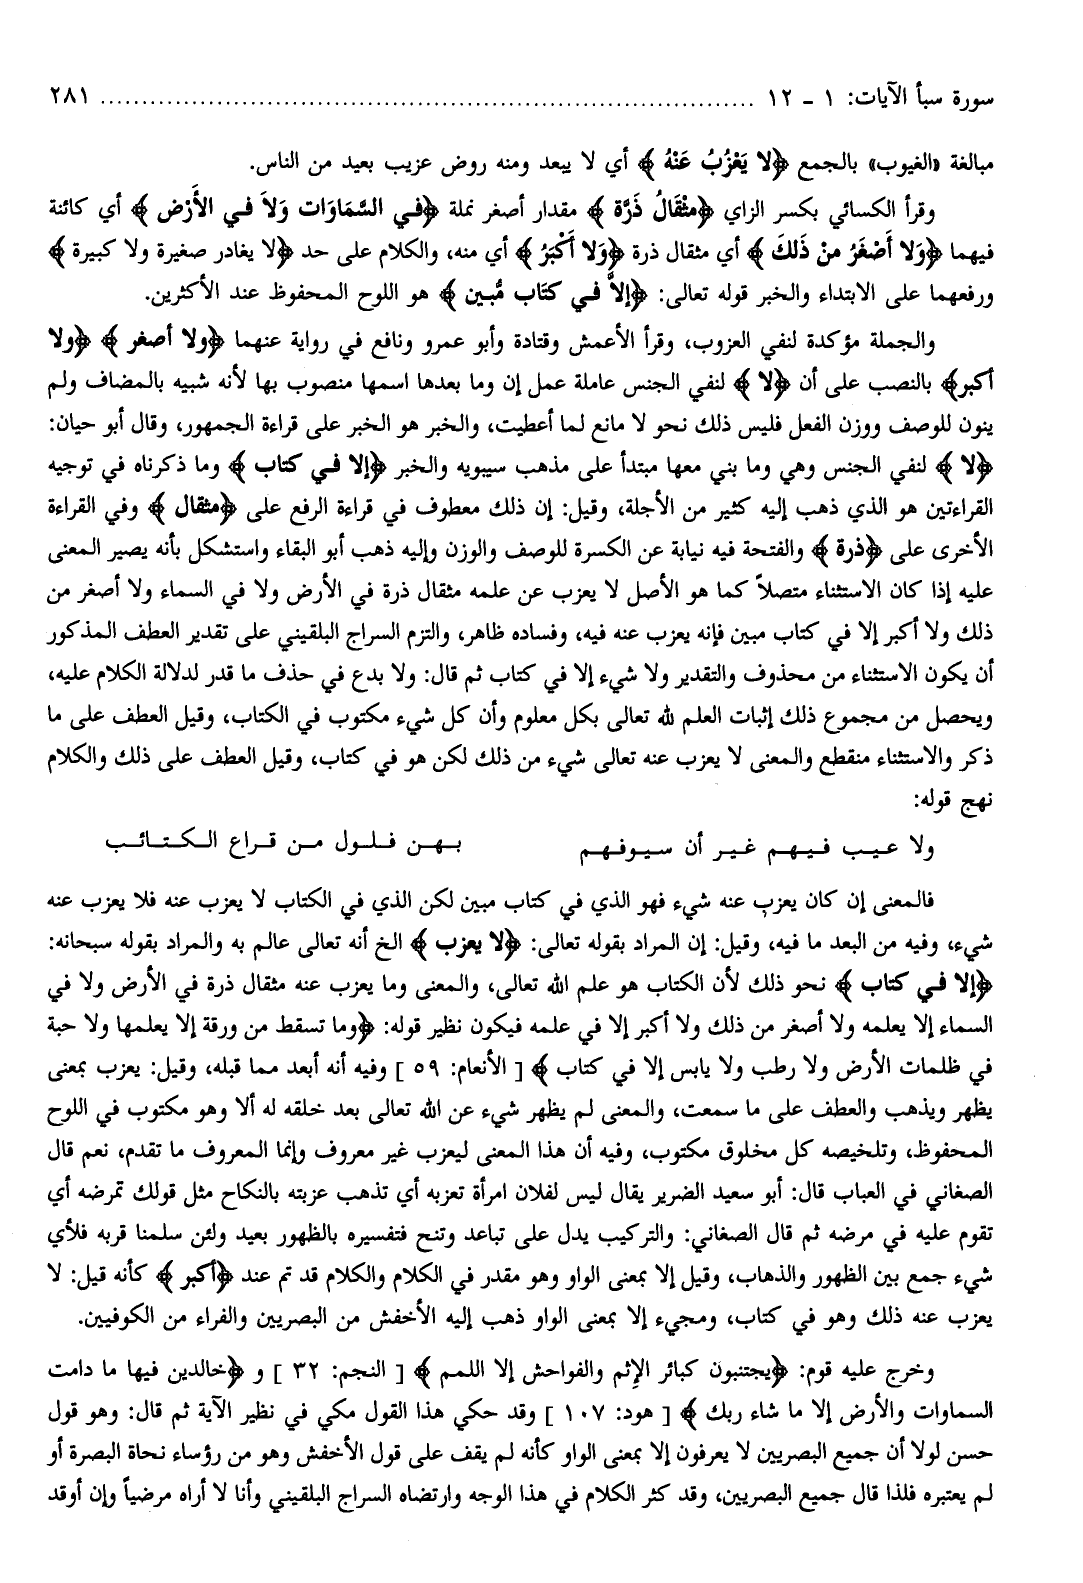 سورة سبأ الآيات: ١ - ١٢ ........................................................................ ٢٨١
مبالغة «الغيوب» بالجمع ﴿لا يَعْزُبُ عَنْهُ﴾ أي لا يبعد ومنه روض عزيب بعيد من الناس.
وقرأ الكسائي بكسر الزاي ﴿مثْقَالُ ذَرَّة﴾ مقدار أصغر نملة ﴿في السَّمَاوَات وَلاَ في الأَرْض﴾ أي كائنة
فيهما ﴿وَلا أَصْغَرُ منْ ذَلكَ﴾ أي مثقال ذرة ﴿وَلا أَكْبَرُ﴾ أي منه، والكلام على حد ﴿لا يغادر صغيرة ولا كبيرة﴾
ورفعهما على الابتداء والخبر قوله تعالى: ﴿إلاَّ في كتَاب مُّبين﴾ هو اللوح المحفوظ عند الأكثرين.
والجملة مؤكدة لنفي العزوب، وقرأ الأعمش وقتادة وأبو عمرو ونافع في رواية عنهما ﴿ولا أصغر﴾ ﴿ولا
أكبر﴾ بالنصب على أن ﴿لا﴾ لنفي الجنس عاملة عمل إن وما بعدها اسمها منصوب بها لأنه شبيه بالمضاف ولم
ينون للوصف ووزن الفعل فليس ذلك نحو لا مانع لما أعطيت، والخبر هو الخبر على قراءة الجمهور، وقال أبو حيان:
﴿لا﴾ لنفي الجنس وهي وما بني معها مبتدأ على مذهب سيبويه والخبر ﴿إلا في كتاب﴾ وما ذكرناه في توجيه
القراءتين هو الذي ذهب إليه كثير من الأجلة، وقيل: إن ذلك معطوف في قراءة الرفع على ﴿مثقال﴾ وفي القراءة
الأخرى على ﴿ذرة﴾ والفتحة فيه نيابة عن الكسرة للوصف والوزن وإليه ذهب أبو البقاء واستشكل بأنه يصير المعنى
عليه إذا كان الاستثناء متصلاً كما هو الأصل لا يعزب عن علمه مثقال ذرة في الأرض ولا في السماء ولا أصغر من
ذلك ولا أكبر إلا في كتاب مبين فإنه يعزب عنه فيه، وفساده ظاهر، والتزم السراج البلقيني على تقدير العطف المذكور
أن يكون الاستثناء من محذوف والتقدير ولا شيء إلا في كتاب ثم قال: ولا بدع في حذف ما قدر لدلالة الكلام عليه،
ويحصل من مجموع ذلك إثبات العلم لله تعالى بكل معلوم وأن كل شيء مكتوب في الكتاب، وقيل العطف على ما
ذكر والاستثناء منقطع والمعنى لا يعزب عنه تعالى شيء من ذلك لكن هو في كتاب، وقيل العطف على ذلك والكلام
نهج قوله:
ولا عيب فيهم غير أن سيوفهم بهن فلول من قراع الكتائب
فالمعنى إن كان يعزب عنه شيء فهو الذي في كتاب مبين لكن الذي في الكتاب لا يعزب عنه فلا يعزب عنه
شيء، وفيه من البعد ما فيه، وقيل: إن المراد بقوله تعالى: ﴿لا يعزب﴾ الخ أنه تعالى عالم به والمراد بقوله سبحانه:
﴿إلا في كتاب﴾ نحو ذلك لأن الكتاب هو علم الله تعالى، والمعنى وما يعزب عنه مثقال ذرة في الأرض ولا في
السماء إلا يعلمه ولا أصغر من ذلك ولا أكبر إلا في علمه فيكون نظير قوله: ﴿وما تسقط من ورقة إلا يعلمها ولا حبة
في ظلمات الأرض ولا رطب ولا يابس إلا في كتاب﴾ [ الأنعام: ٥٩ ] وفيه أنه أبعد مما قبله، وقيل: يعزب بمعنى
يظهر ويذهب والعطف على ما سمعت، والمعنى لم يظهر شيء عن الله تعالى بعد خلقه له ألا وهو مكتوب في اللوح
المحفوظ، وتلخيصه كل مخلوق مكتوب، وفيه أن هذا المعنى ليعزب غير معروف وإنما المعروف ما تقدم، نعم قال
الصغاني في العباب قال: أبو سعيد الضرير يقال ليس لفلان امرأة تعزبه أي تذهب عزبته بالنكاح مثل قولك تمرضه أي
تقوم عليه في مرضه ثم قال الصغاني: والتركيب يدل على تباعد وتنح فتفسيره بالظهور بعيد ولئن سلمنا قربه فلأي
شيء جمع بين الظهور والذهاب، وقيل إلا بمعنى الواو وهو مقدر في الكلام والكلام قد تم عند ﴿أكبر﴾ كأنه قيل: لا
يعزب عنه ذلك وهو في كتاب، ومجيء إلا بمعنى الواو ذهب إليه الأخفش من البصريين والفراء من الكوفيين.
وخرج عليه قوم: ﴿يجتنبون كبائر الإثم والفواحش إلا اللمم﴾ [ النجم: ٣٢ ] و ﴿خالدين فيها ما دامت
السماوات والأرض إلا ما شاء ربك﴾ [ هود: ١٠٧ ] وقد حكي هذا القول مكي في نظير الآية ثم قال: وهو قول
حسن لولا أن جميع البصريين لا يعرفون إلا بمعنى الواو كأنه لم يقف على قول الأخفش وهو من رؤساء نحاة البصرة أو
لم يعتبره فلذا قال جميع البصريين، وقد كثر الكلام في هذا الوجه وارتضاه السراج البلقيني وأنا لا أراه مرضياً وإن أوقد